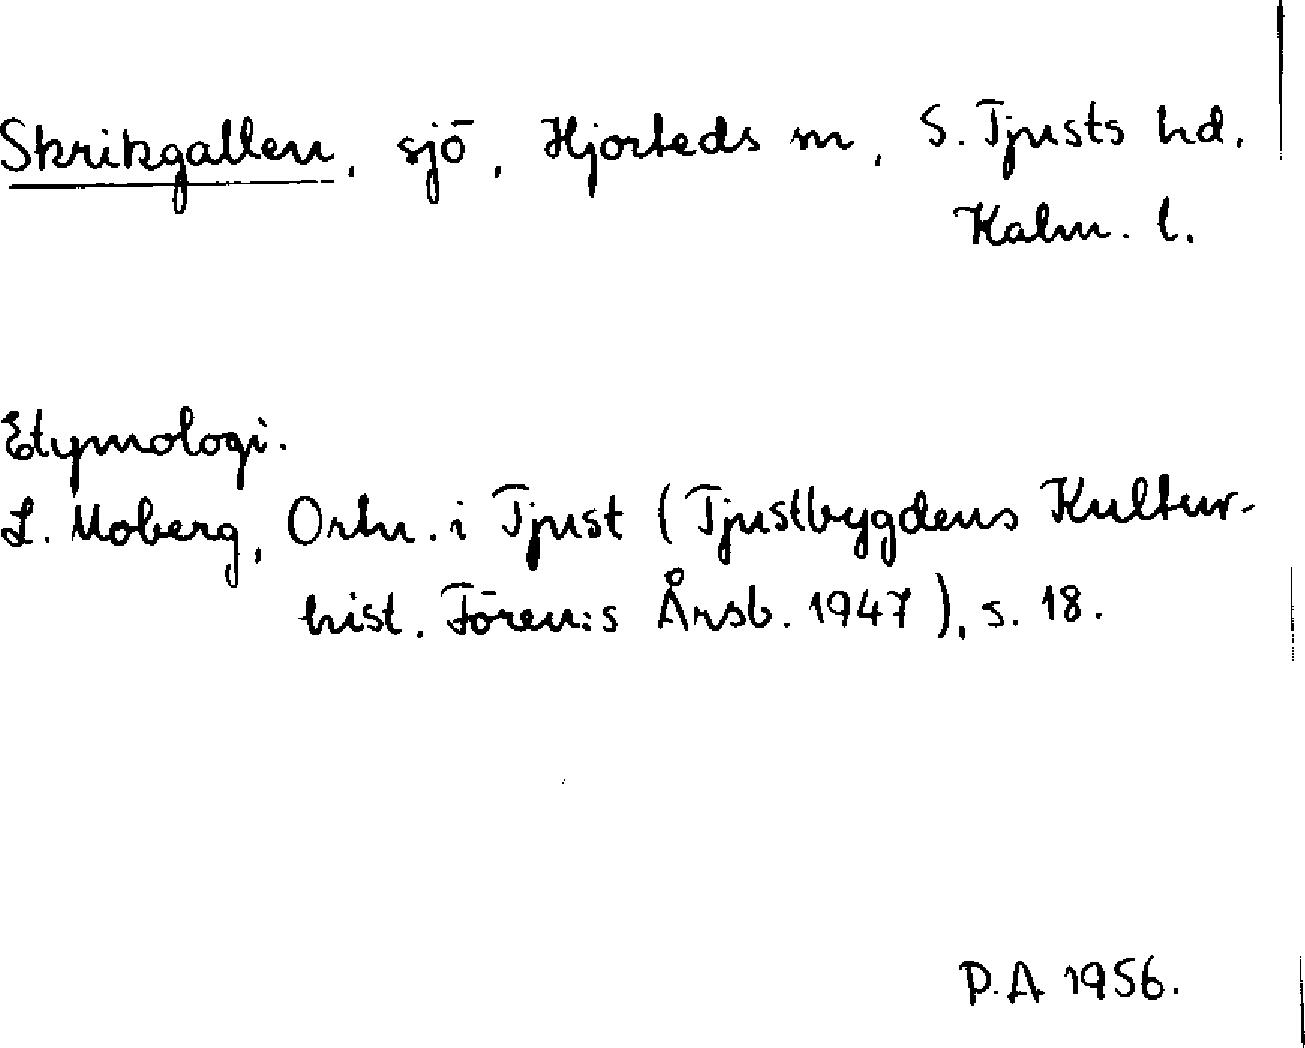 Skrikgallen, sjö, Hjorteds sn, S. Tjusts hd.
Kalm. l.
Etymologi.
L. Moberg, Ortn. i Tjust (Tjustbygdens Kultur-
hist. Fören:s Årsb. 1947), s. 18.
P.A 1956.